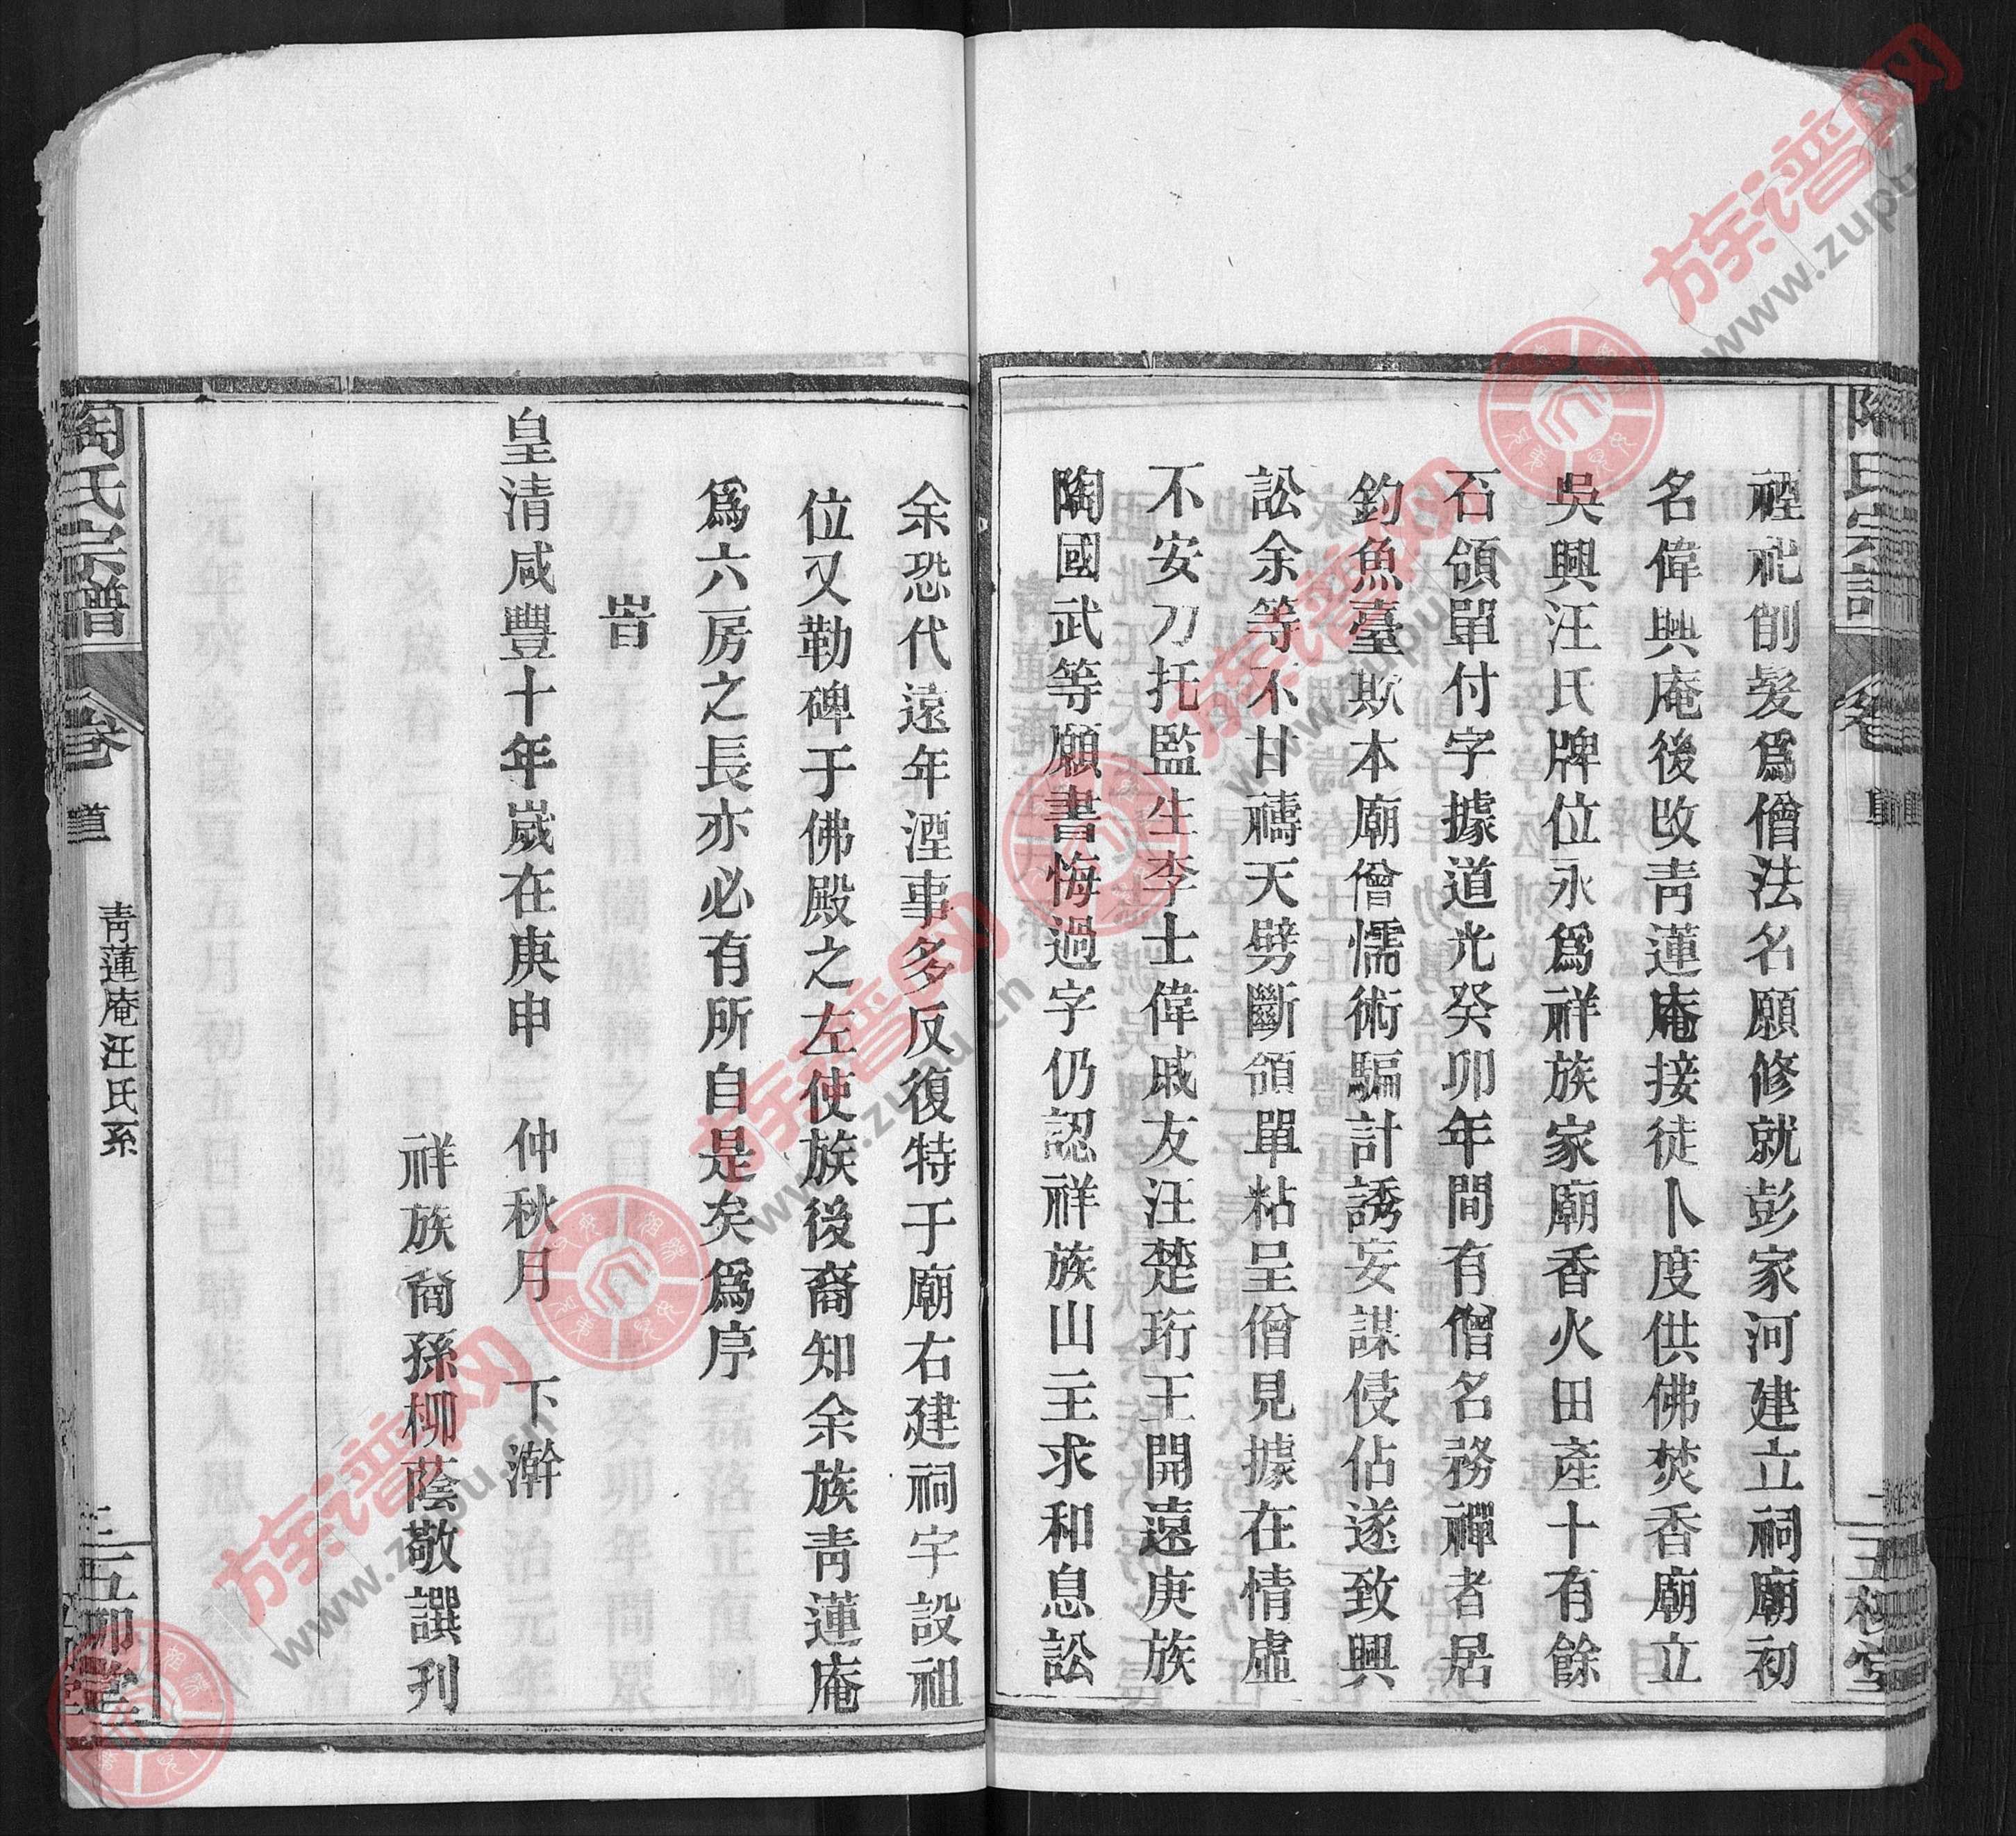 禋祀削髮爲僧法名願修就彭家河建立祠廟初
名偉興庵後改靑蓮庵接徒卜度供佛焚香廟立
吳興汪氏牌位永爲祥族家廟香火田產十有餘
石領單付字據道光癸卯年間有僧名務禪者居
釣魚臺欺本廟僧懦術騙計誘妄謀侵佔遂致興
訟余等不甘禱天劈斷領單粘呈僧見據在情虛
不安刀托監生李士偉戚友汪楚珩王開遠庚族
陶國武等願書悔過字仍認祥族山主求和息訟
余恐代遠年湮事多反復特于廟右建祠宇設祖
位又勒碑于佛殿之左使族後裔知余族靑蓮庵
爲六房之長亦必有所自是矣爲序
旹
皇清咸豐十年嵗在庚申 仲秋月 下澣
祥族裔孫柳蔭敬譔刊
陶氏宗譜 卷 道 靑蓮庵汪氏系 三 五柳堂
族谱网 www.zupu.cn
族谱网 www.zupu.cn
族谱网 www.zupu.cn
族谱网 www.zupu.cn